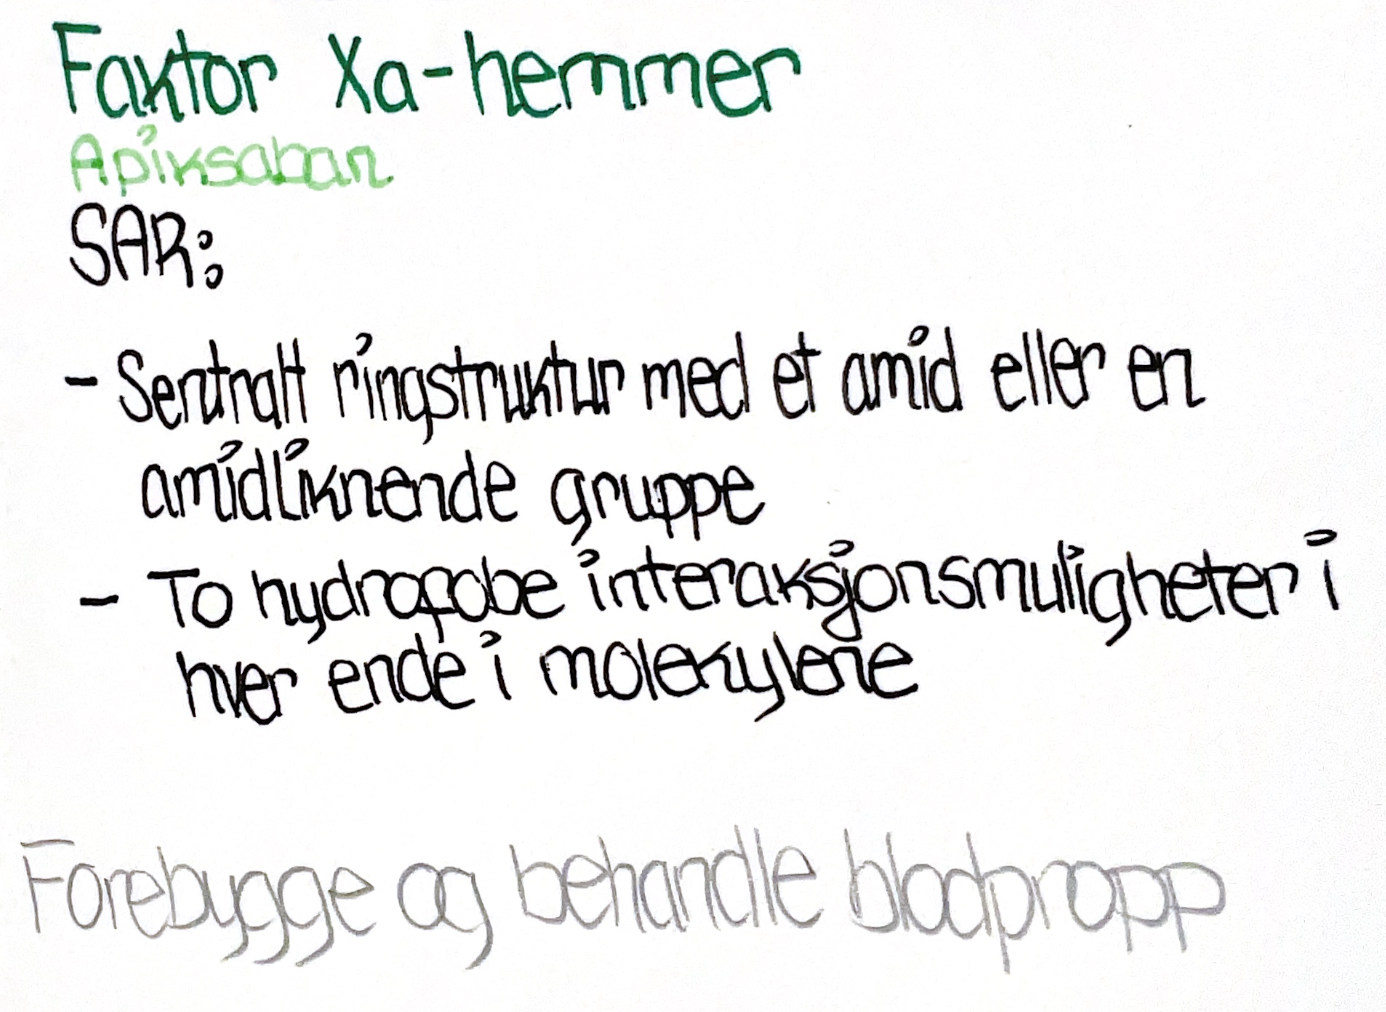 Faktor Xa-hemmer
Apiksaban
SAR:
- Sentralt ringstruktur med et amid eller en
amidliknende gruppe
- To hydrofobe interaksjonsmuligheter i
hver ende i molekylene
Forebygge og behandle blodpropp